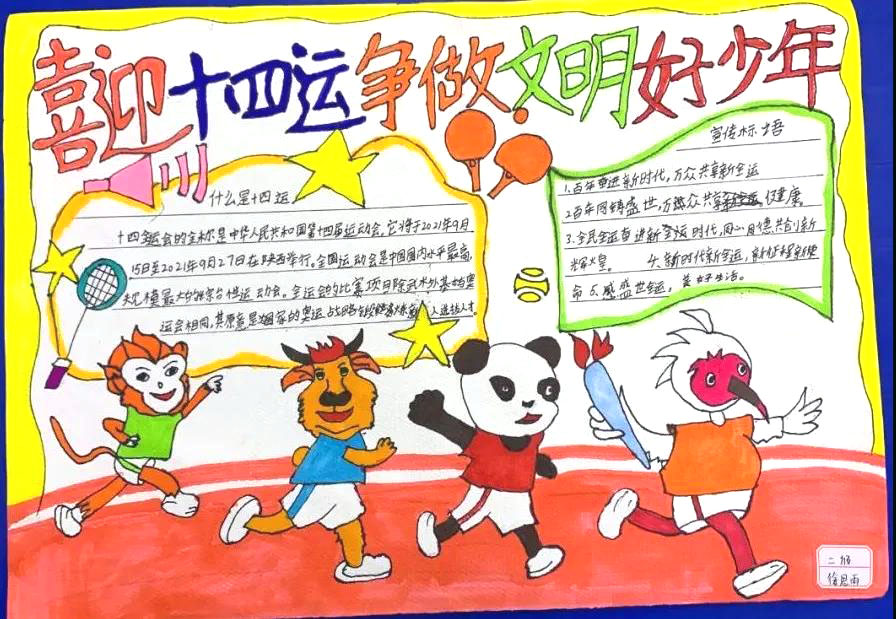 喜迎十四运争做文明好少年
什么是十四运
十四运会的全称是中华人民共和国第十四届运动会,它将于2021年9月
15日至2021年9月27日在陕西举行。全国运动会是中国国内水平最高,
规模最大的综合性运动会。全运会的比赛项目除武术外,基本与奥
运会相同,其原意是为国家的奥运战略 人选拔人才。
宣传标语
1.百年奋进新时代,万众共享新全运
2百年同铸盛世,万 众共享 健康。
3.全民全运奋进新全运时代,同心同德共创新
辉煌。 4.新时代新全运,新征程新使
命 5. 盛世全运,美好生活。
二班
徐思雨